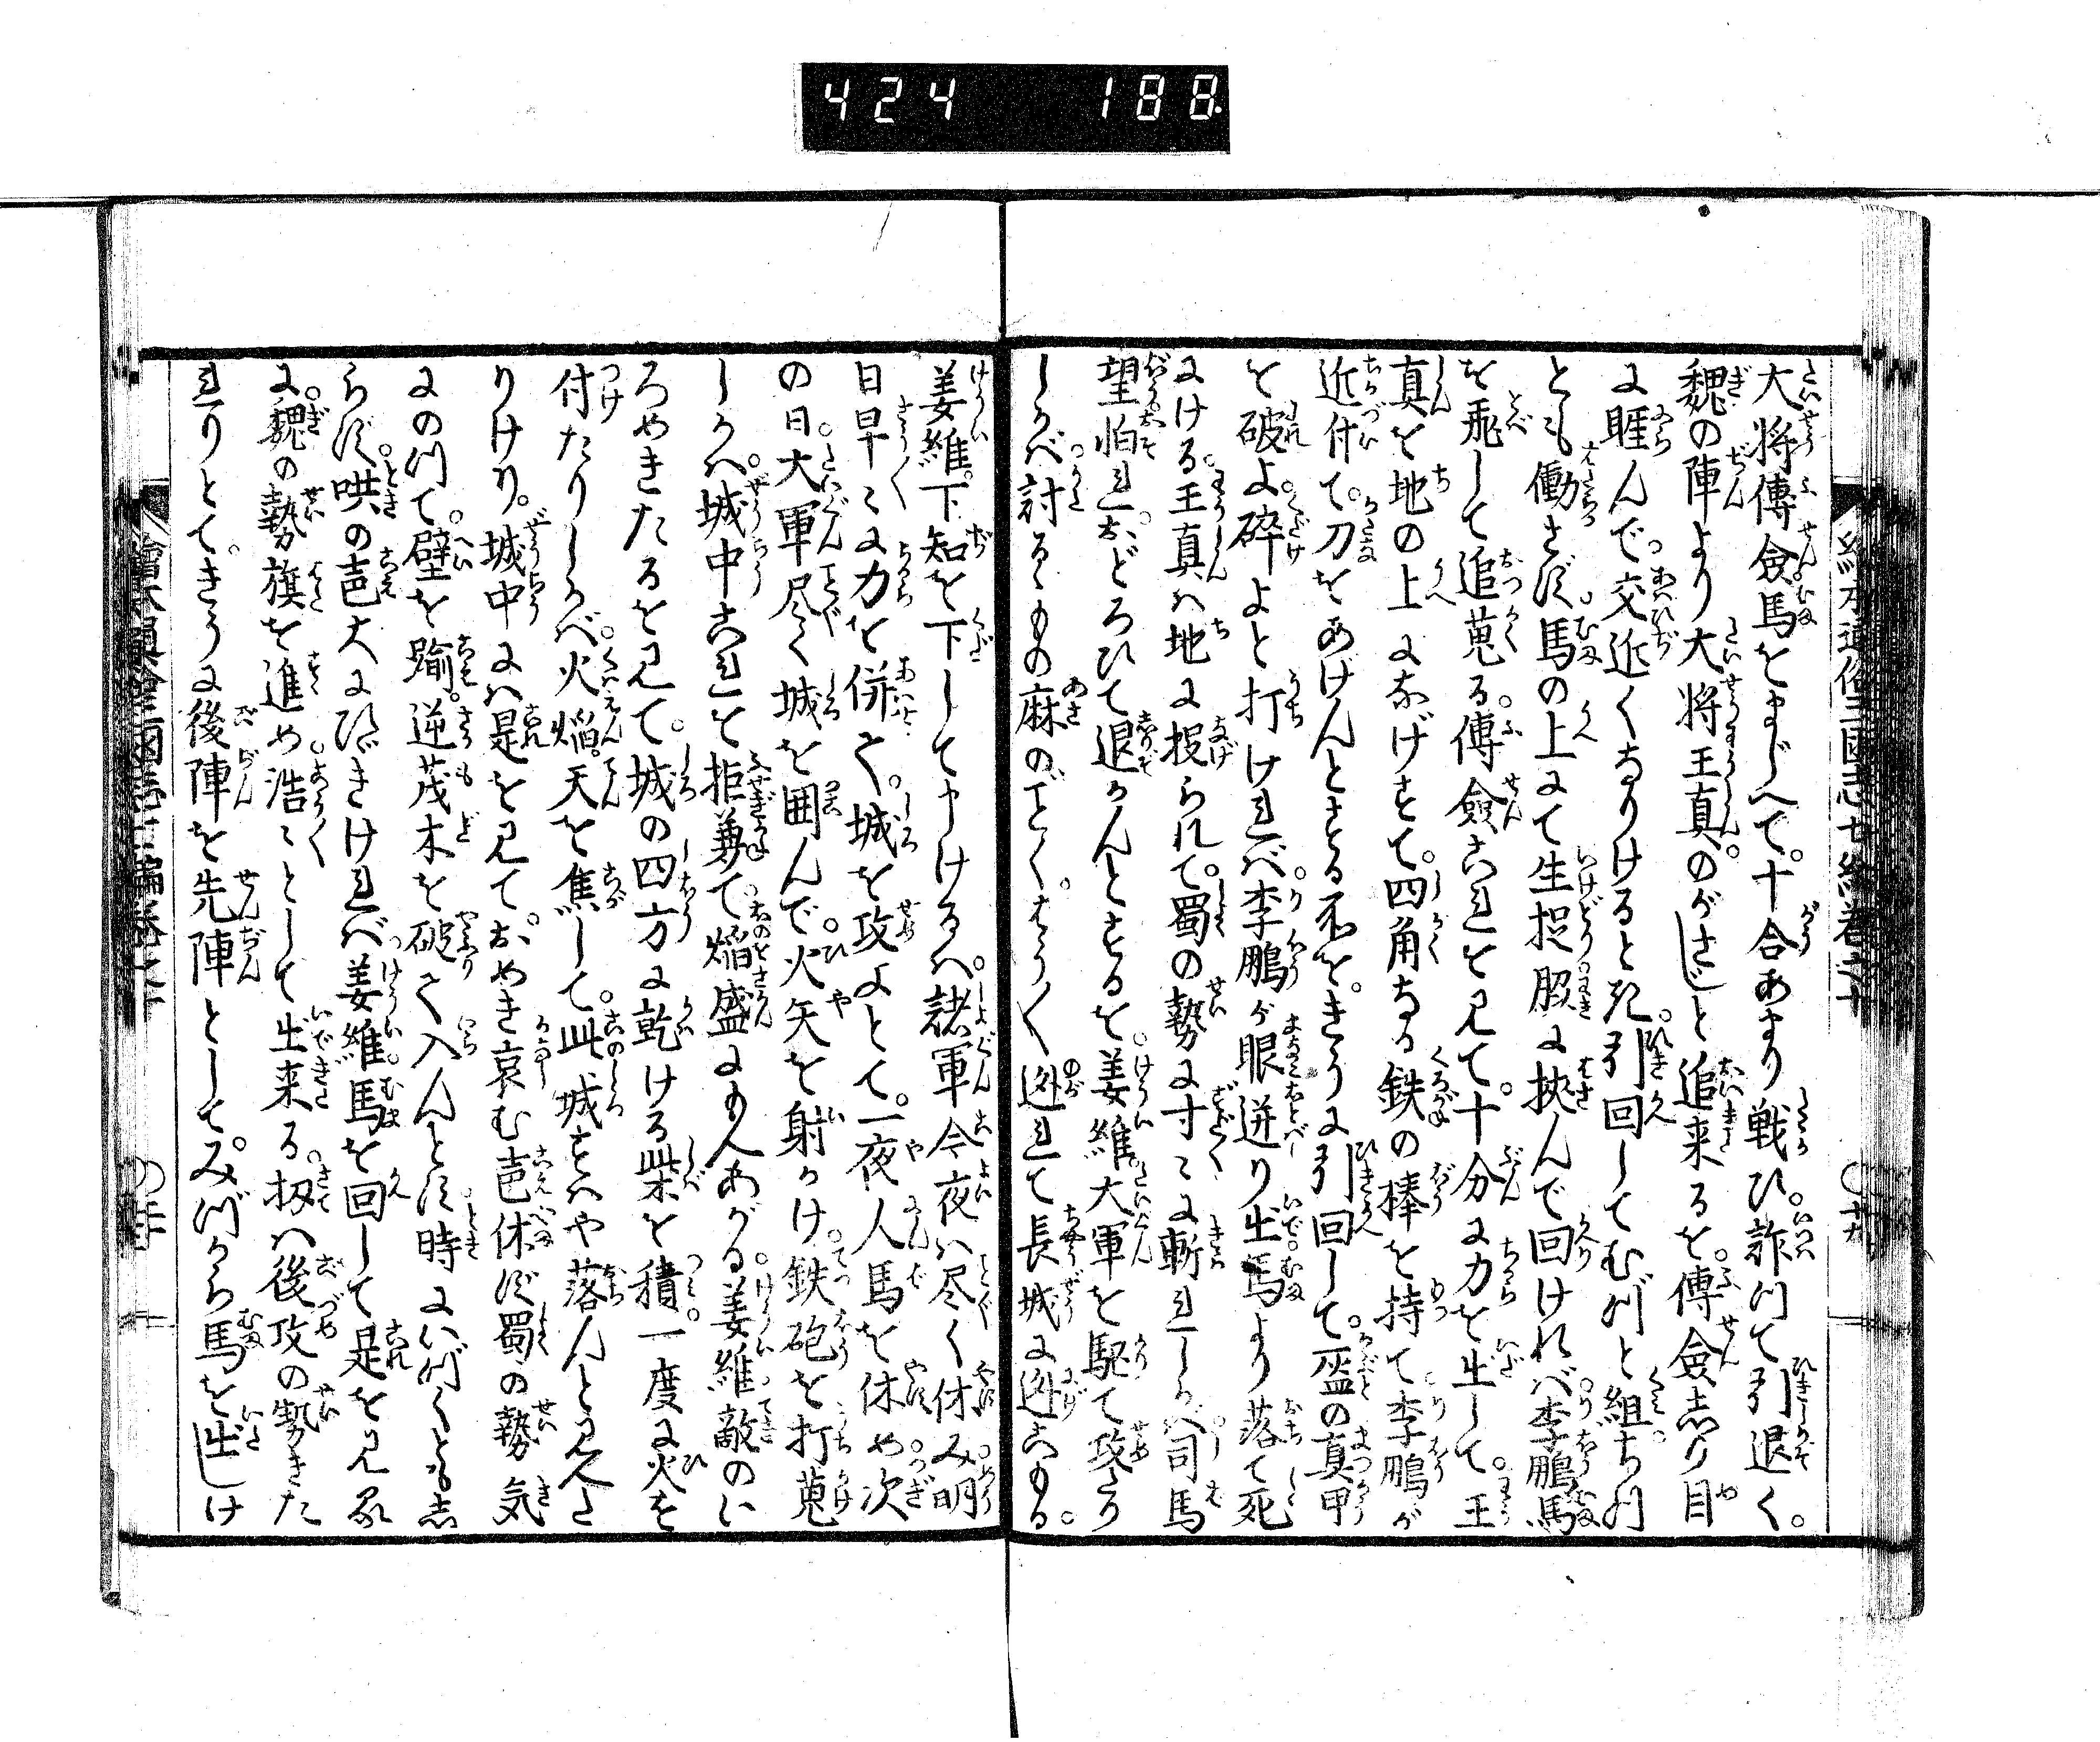 424 188
大将傅僉馬をまじへて。十合あまり戦ひ。詐つて引退く。
魏の陣より大将王真。のがさじと追来るを。傅僉志り目
に睚んで交近くなりけると死。引回してむづと組ち川
とも働さず。馬の上にて生捉脇に挾んで回けれバ。李鵬馬
を飛して追蒐る。傅僉これを見て。十分に力を出して。王
真を地の上になげすて。四角なる鉄の棒を持て李鵬が
近付て。刀をあげんとする所を。きうに引回して。盔の真甲
を破よ。碎よと打けれバ。李鵬が眼迸り出馬より落て死
にける。王真ハ地に投られて。蜀の勢に寸々に斬れしかバ司馬
望怕れおどろひて退かんとするを。姜維大軍を駆て攻たり
しかバ討るゝもの麻のごとく。はう〳〵迯れて長城に迯こもる。
姜維。下知を下して申けるハ。諸軍今夜ハ尽く休み明
日早々に力を併せて。城を攻よとて。一夜人馬を休め次
の日。大軍尽く城を囲んで。火矢を射かけ。鉄砲を打蒐
しかバ。城中これを拒兼て。焔盛にもへあがる。姜維敵のい
ろめきたるを見て。城の四方に乾ける柴を積。一度に火を
付たりしかバ。火焔。天を焦して。此城すハや落んと見へさ
りけり。城中にハ是を見て。おめき哀む声休ず。蜀の勢気
にのつて。壁を踰。逆茂木を破て入んとす。時にいづくとも志
らず。哄の声大にひゞきけれバ。姜維馬を回して是を見る
に。魏の勢旗を進め浩々として出来る。扨ハ後攻の勢きた
れりとて。きうに後陣を先陣として。みづから馬を出しけ